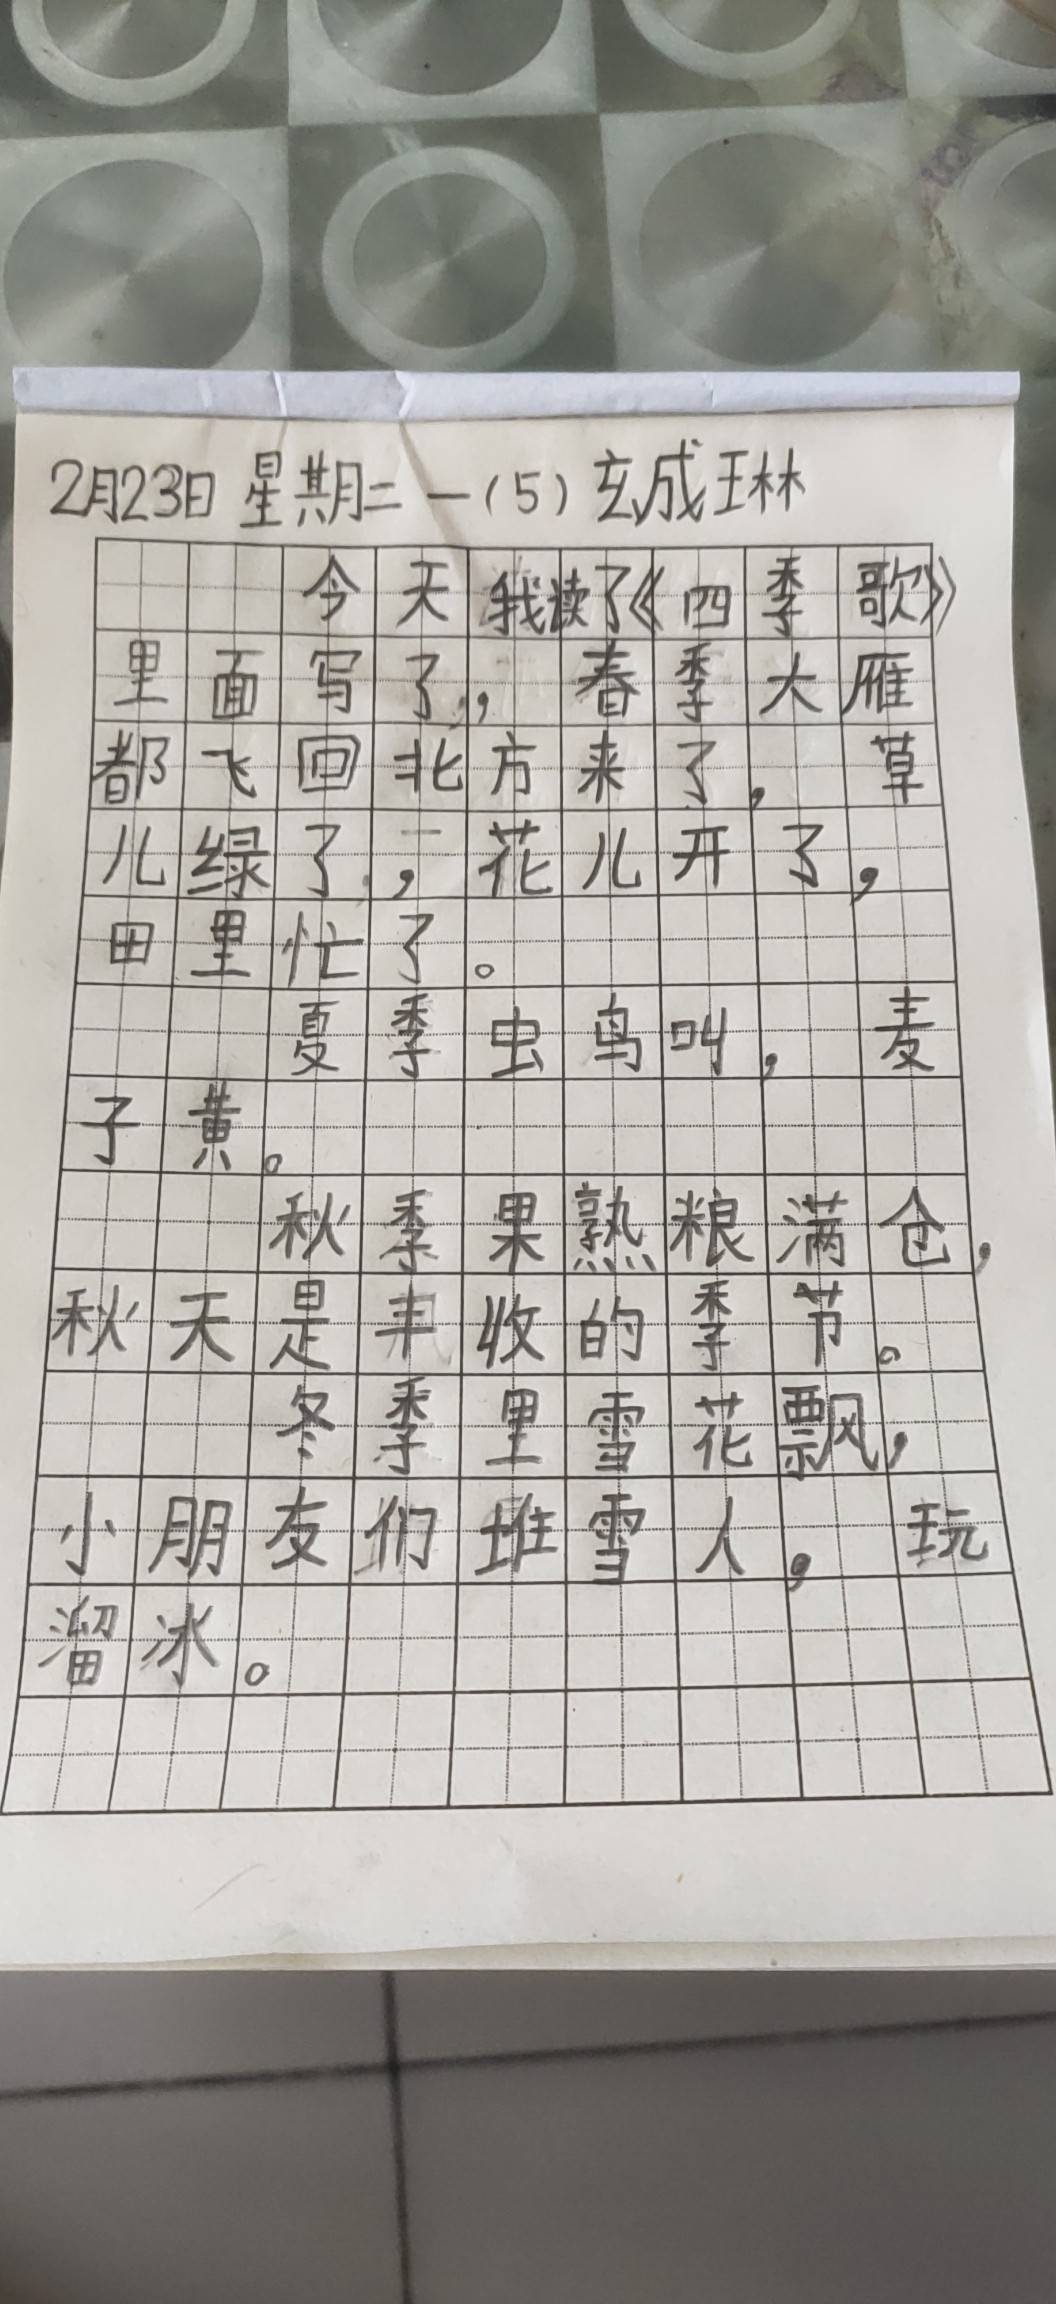 2月23日 星期二 一(5) 玄成琳
今天我读了《四季歌》
里面写了，春季大雁
都飞回北方来了，草
儿绿了，花儿开了，
田里忙了。
夏季虫鸟叫，麦
子黄。
秋季果熟粮满仓，
秋天是丰收的季节。
冬季里雪花飘，
小朋友们堆雪人，玩
溜冰。